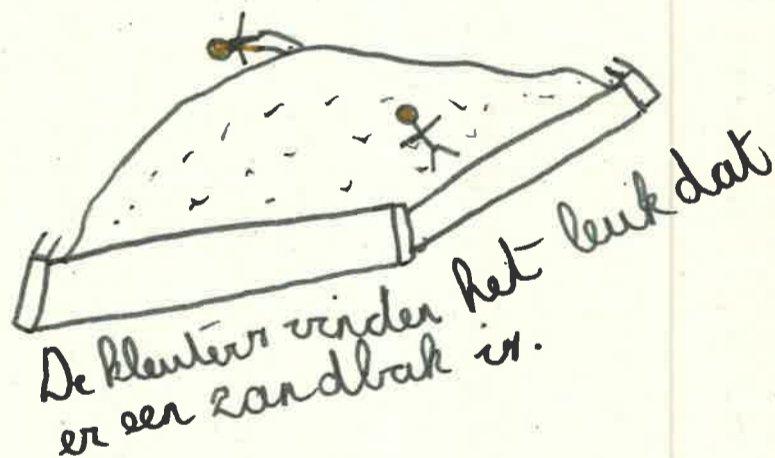 De kleuters vinden het leuk dat
er een zandbak is.